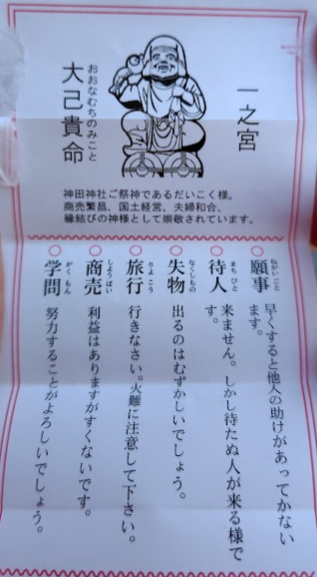 一之宮
おおなむちのみこと
大己貴命
神田神社ご祭神であるだいこく様。
商売繁昌、国土経営、夫婦和合、
縁結びの神様として崇敬されています。
ねがいごと
願事 早くすると他人の助けがあってかない
ます。
まちひと
待人 来ません。しかし待たぬ人が来る様で
す。
なくしもの
失物 出るのはむずかしいでしょう。
りょこう
旅行 行きなさい。火難に注意して下さい。
しょうばい
商売 利益はありますがすくないです。
がくもん
学問 努力することがよろしいでしょう。